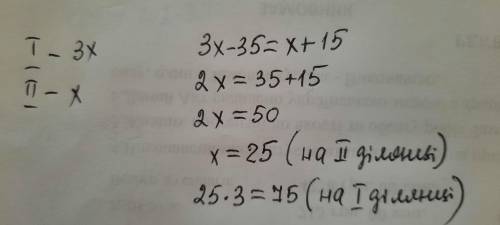 I - 3x
II - x
3x-35=x+15
2x=35+15
2x=50
x=25 (на II ділянці)
25·3=75 (на I ділянці)